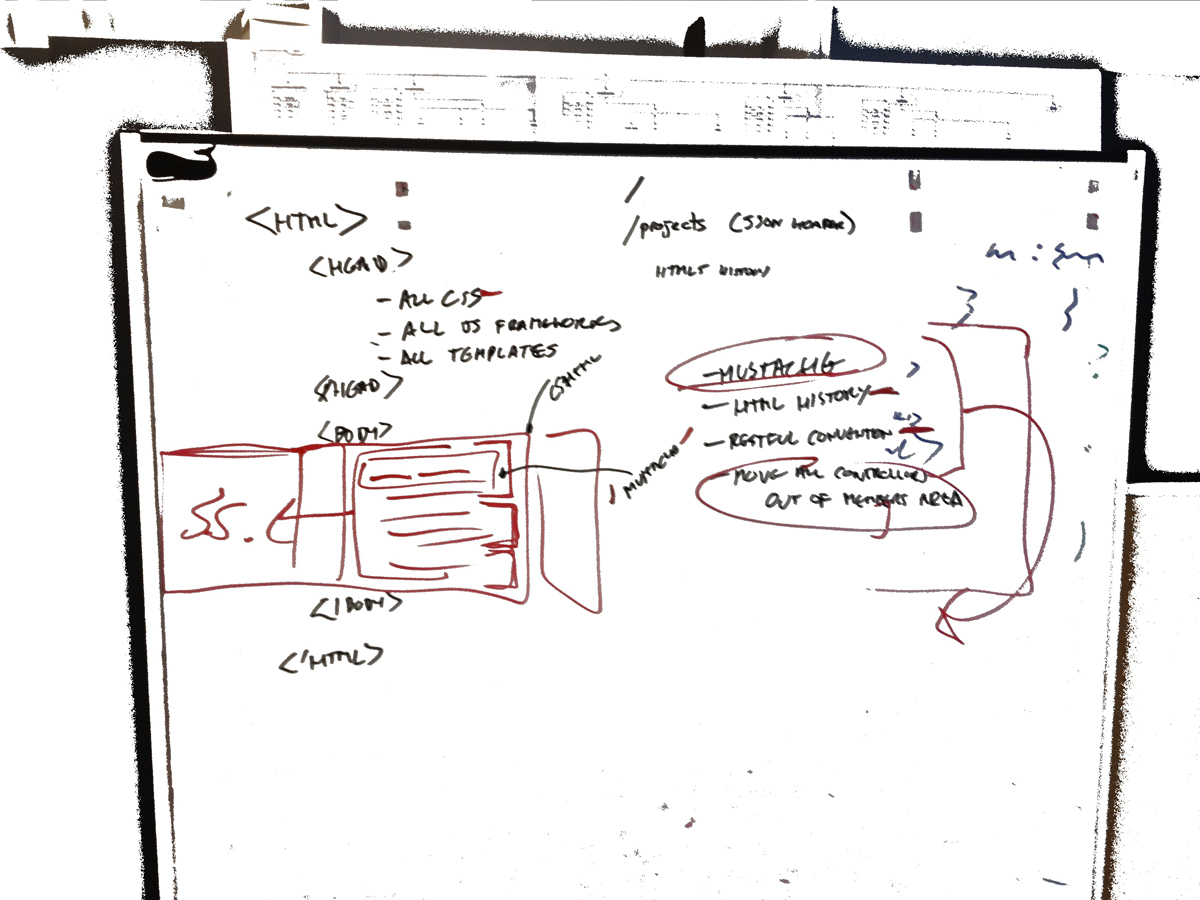 <HTML>
<HEAD>
- ALL CSS
- ALL JS FRAMEWORKS
- ALL TEMPLATES
</HEAD>
<BODY>
CSHTML
MUSTACHE
</BODY>
</HTML>
/
/projects (JSON HEADER)
HTML5 HISTORY
- MUSTACHE
- HTML HISTORY
- RESTFUL CONVENTION
- MOVE ALL CONTROLLERS
OUT OF MEMBERS AREA
}
{